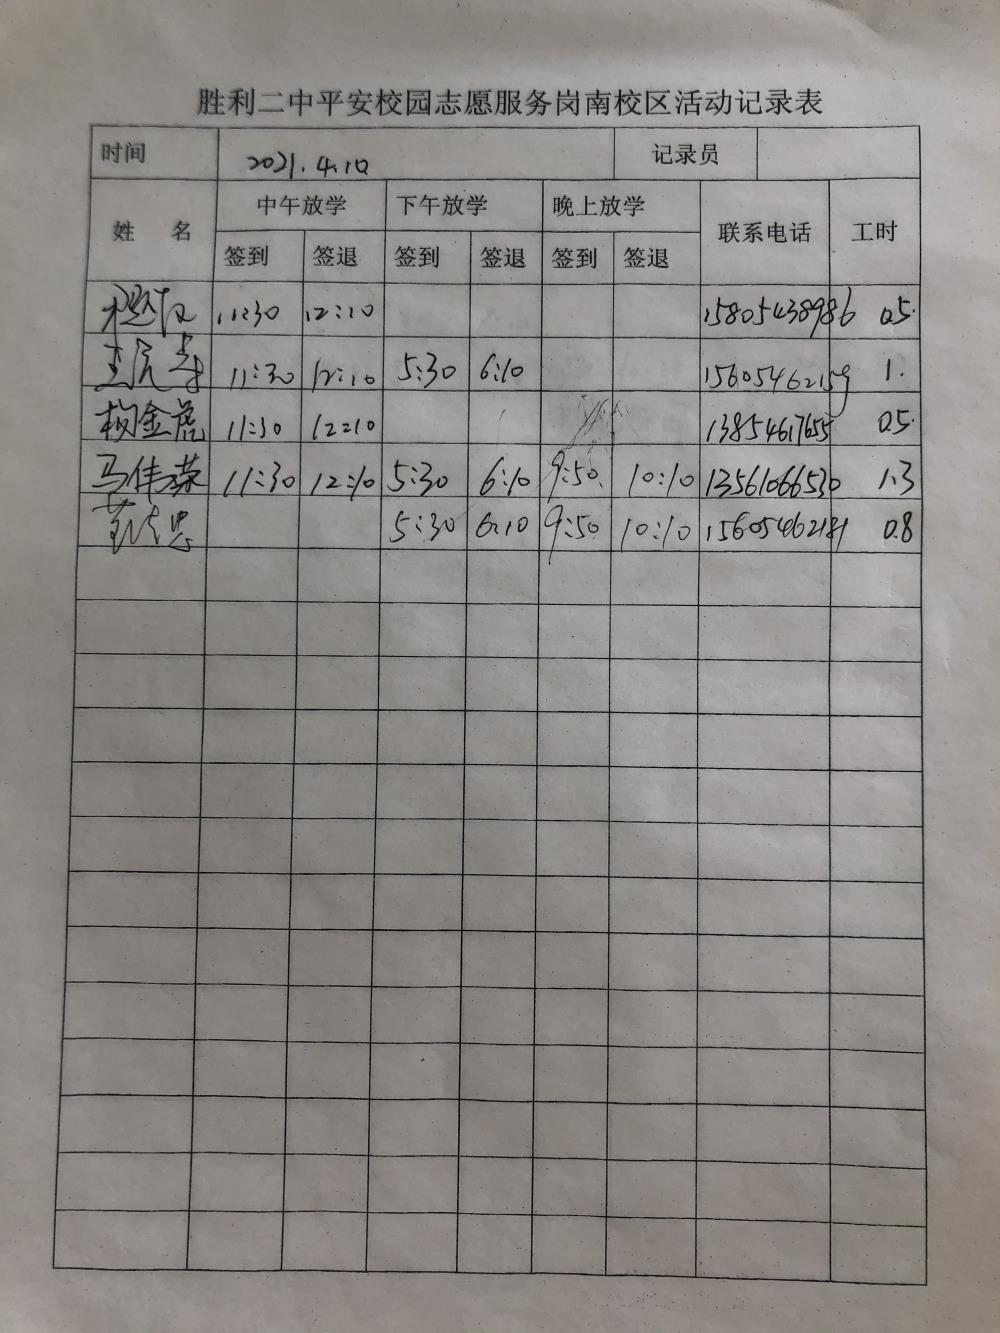 胜利二中平安校园志愿服务岗南校区活动记录表
时间 2021.4.10 记录员
姓 名 中午放学 下午放学 晚上放学 联系电话 工时
签到 签退 签到 签退 签到 签退
11:30 12:10 15805438986 0.5.
11:30 12:10 5:30 6:10 15605462159 1.
杨金虎 11:30 12:10 13854617655 0.5.
马伟荣 11:30 12:10 5:30 6:10 9:50 10:10 13561066530 1.3
5:30 6:10 9:50 10:10 15605462181 0.8